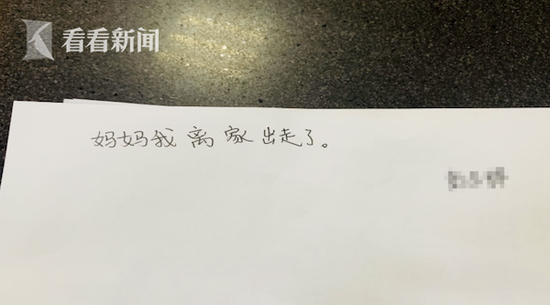 看看新闻
妈妈我离家出走了。